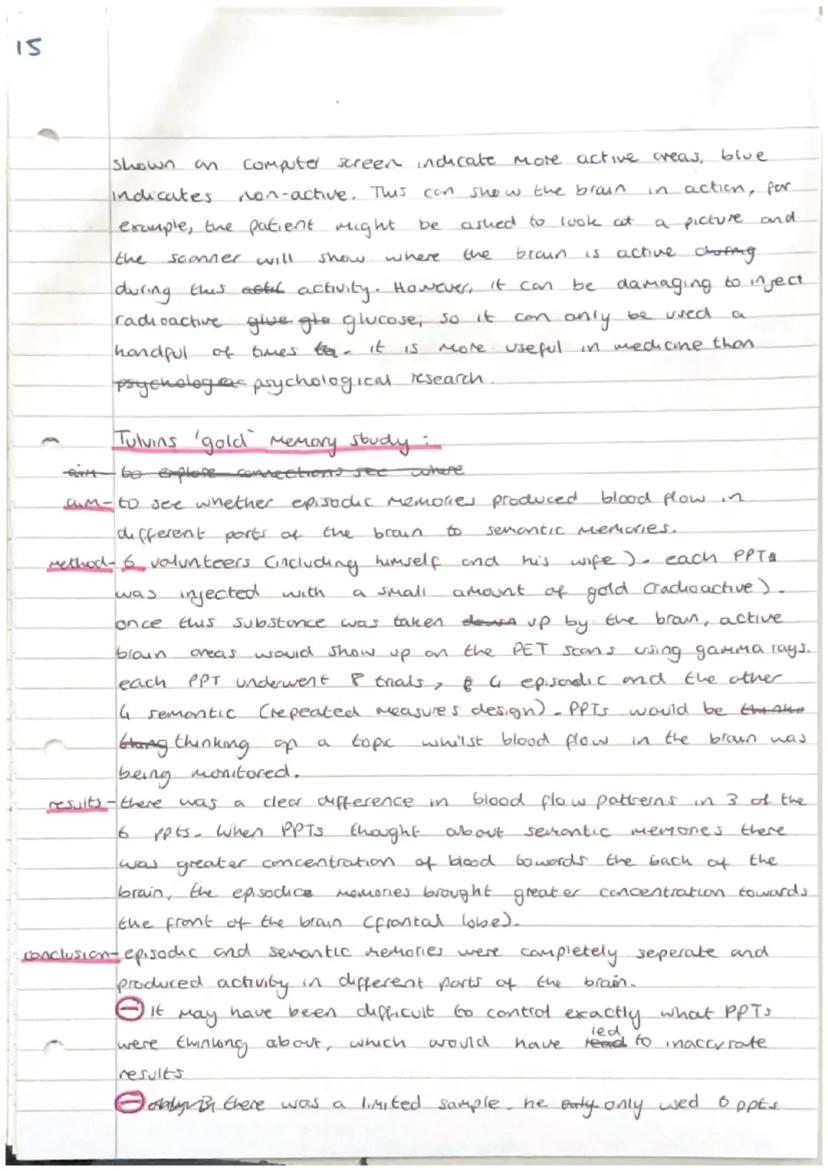 15
shown on computer screen indicate more active areas, blue
indicates non-active. This can show the brain in action, for
example, the patient might be asked to look at a picture and
the scanner will show where the brain is active
during this activity. However, it can be damaging to inject
radioactive glucose, so it can only be used a
handful of times. it is more useful in medicine than
psychological research.
Tulvins 'gold' memory study:
aim - to explore connections see where
aim - to see whether episodic memories produced blood flow in
different parts of the brain to semantic memories.
method - 6 volunteers (including himself and his wife). each PPT
was injected with a small amount of gold (radioactive).
once this substance was taken up by the brain, active
brain areas would show up on the PET scans using gamma rays.
each PPT underwent 8 trials, 4 episodic and the other
4 semantic (repeated measures design). PPTs would be
thinking of a topic whilst blood flow in the brain was
being monitored.
results - there was a clear difference in blood flow patterns in 3 of the
6 ppts. When PPTs thought about semantic memories there
was greater concentration of blood towards the back of the
brain, the episodic memories brought greater concentration towards
the front of the brain (frontal lobe).
conclusion - episodic and semantic memories were completely seperate and
produced activity in different parts of the brain.
⊖ it may have been difficult to control exactly what PPTs
were thinking about, which would have led to inaccurate
results
⊖ there was a limited sample. he only used 6 ppts